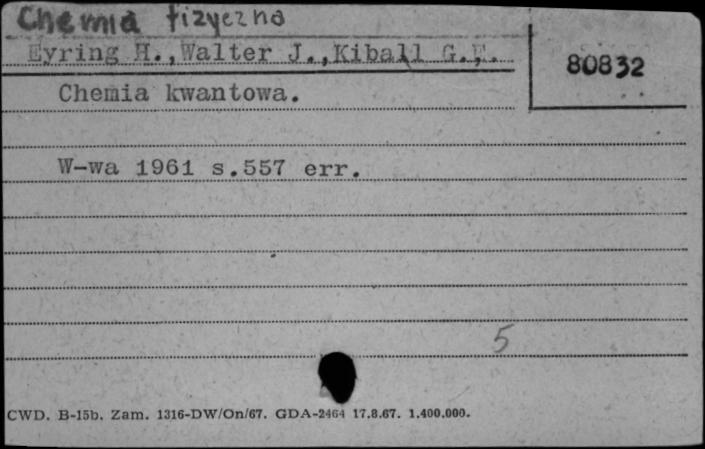 Chemia fizyczna
Eyring H.,Walter J.,Kiball G.E.
80832
Chemia kwantowa.
W-wa 1961 s.557 err.
5
CWD. B-15b. Zam. 1316-DW/On/67. GDA-2464 17.8.67. 1.400.000.